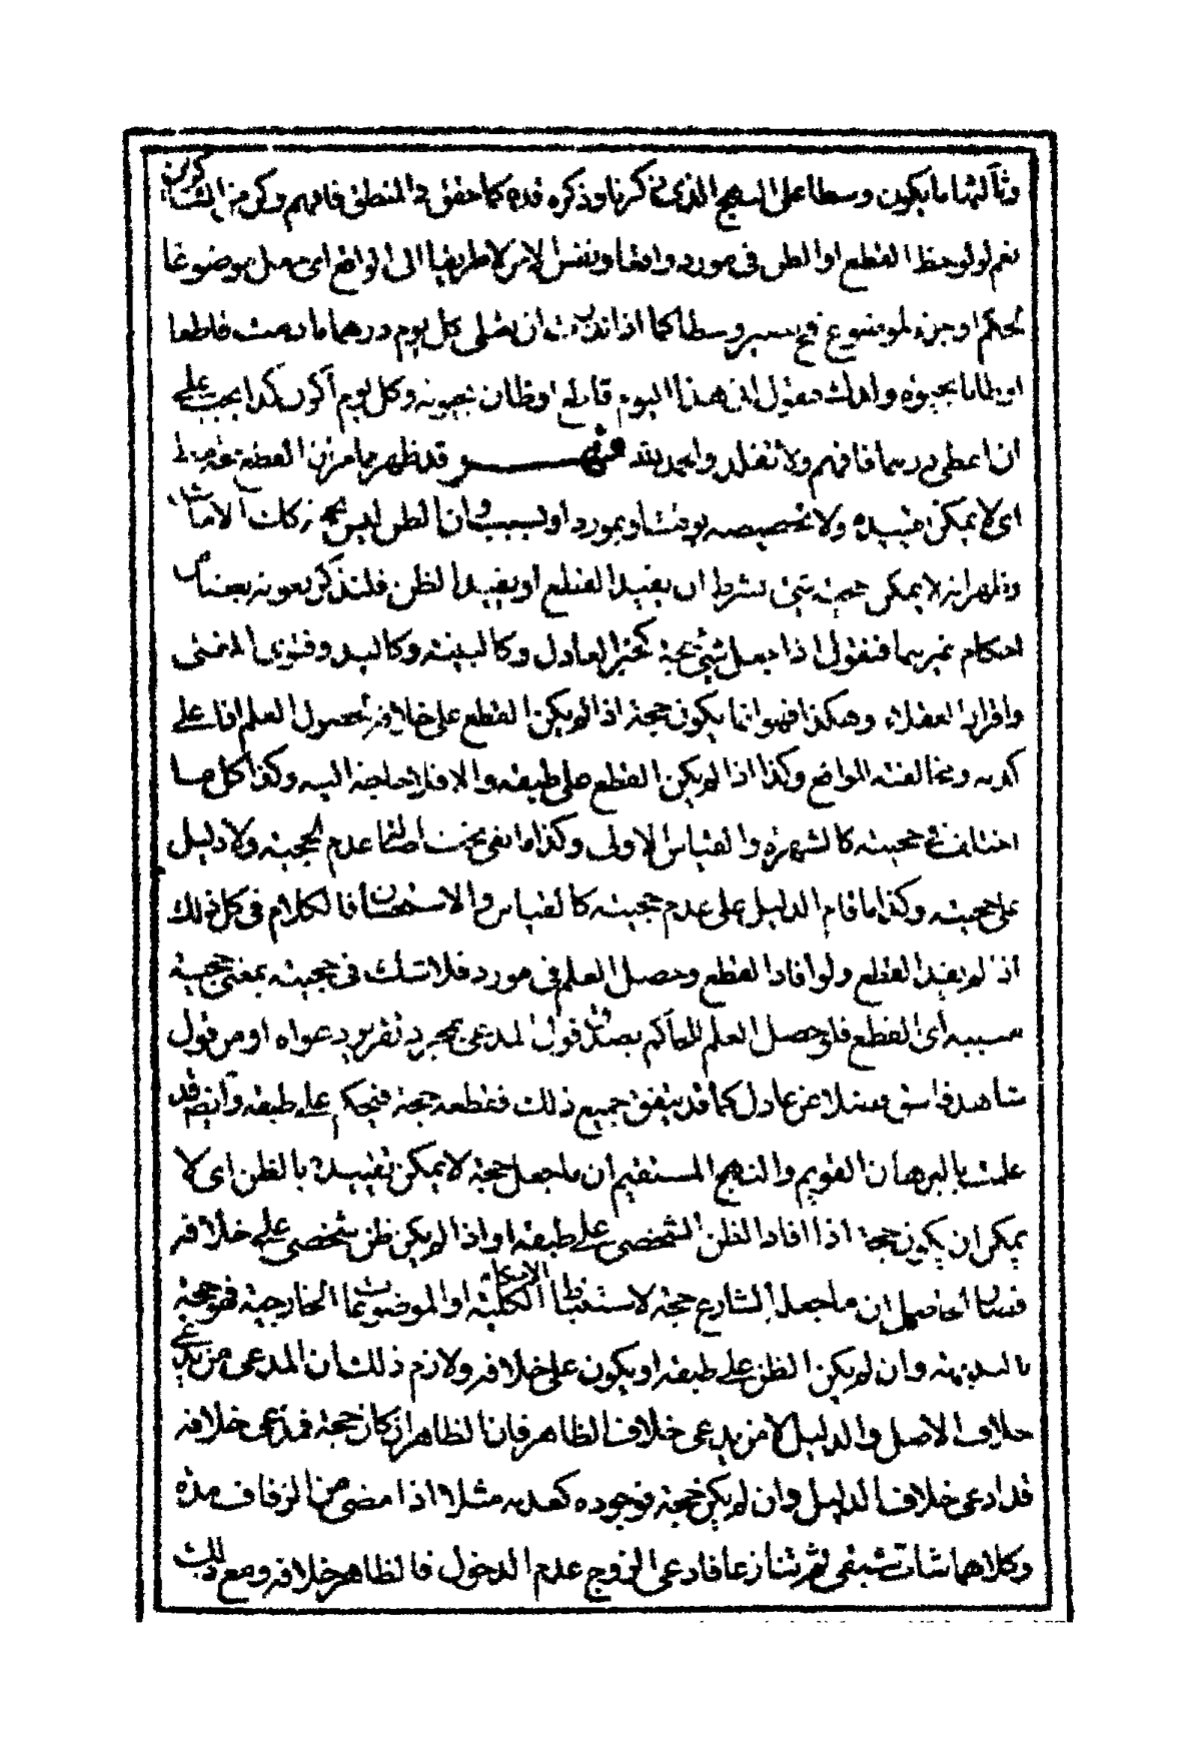 وثالثها ما يكون وسطا على النهج الذى ذكرنا وذكره قده كما حقق فى المنطق فافهم وكن من الشاكرين
نعم لو لوحظ القطع او الظن فى مورد واقعا ونفس الامر لا طريقا الى الواقع اى جعل موضوعا
لحكم او جزء لموضوع فح يصير وسطا كما اذا نذرت ان تعطى كل يوم درهما ما دمت قاطعا
او ظانا بحيوة ولدك فتقول انى هذا اليوم قاطع او ظان بحيوته وكل يوم اكون كذا يجب على
ان اعطى درهما فافهم ولا تغفل والحمد لله قد ظهر مما مر ان القطع
اى لا يمكن تقييده ولا تخصيصه بوقت او بمورد او بسبب وان الظن ليس بحجة
وظهر انه لا يمكن حجية شئ بشرط ان يفيد القطع او يفيد الظن فلنذكر بعونه بعض
احكام غيرهما فنقول اذا جعل شئ حجة كخبر العادل وكالبينة وكاليد وفتوى المفتى
واقرار العقلاء وهكذا فهو انما يكون حجة اذا لم يكن القطع على خلافه لحصول العلم اما على
كذبه ومخالفته الواقع وكذا اذا لم يكن القطع على طبقه والا فلا حاجة اليه وكذا كل ما
اختلف فى حجيته كالشهرة والقياس الاولى وكذا ما بقى تحت اصالة عدم الحجية ولا دليل
على حجيته وكذا ما قام الدليل على عدم حجيته كالقياس والاستحسان فالكلام فى كل ذلك
اذا لم يفيد القطع ولو افاد القطع وحصل العلم فى مورد فلا شك فى حجيته بمعنى حجية
مسببه اى القطع فلو حصل العلم للحاكم بصدق قول المدعى بمجرد تقرير دعواه او من قول
شاهد فاسق فضلا عن عادل كما قد يتفق جميع ذلك فقطعه حجة فيحكم على طبقه وايضا قد
علمت بالبرهان القويم والنهج المستقيم ان ما جعل حجة لا يمكن تقييده بالظن اى لا
يمكن ان يكون حجة اذا افاد الظن الشخصى على طبقه او اذا لم يكن ظن شخصى على خلافه
الحاصل ان ما جعل الشارع حجة لاستنباط الاحكام الكلية او الموضوعات الخارجية فهو حجة
وان لم يكن الظن على طبقه او يكون على خلافه ولازم ذلك ان المدعى من يدعى
خلاف الاصل والدليل لا من يدعى خلاف الظاهر فان الظاهر ان كان حجة فمدعى خلافه
قد ادعى خلاف الدليل وان لم يكن حجة فوجوده كعدمه مثلا اذا مضى من الزفاف مدة
وكلاهما شاب شبقى ثم تنازعا فادعى الزوج عدم الدخول فالظاهر خلافه ومع ذلك